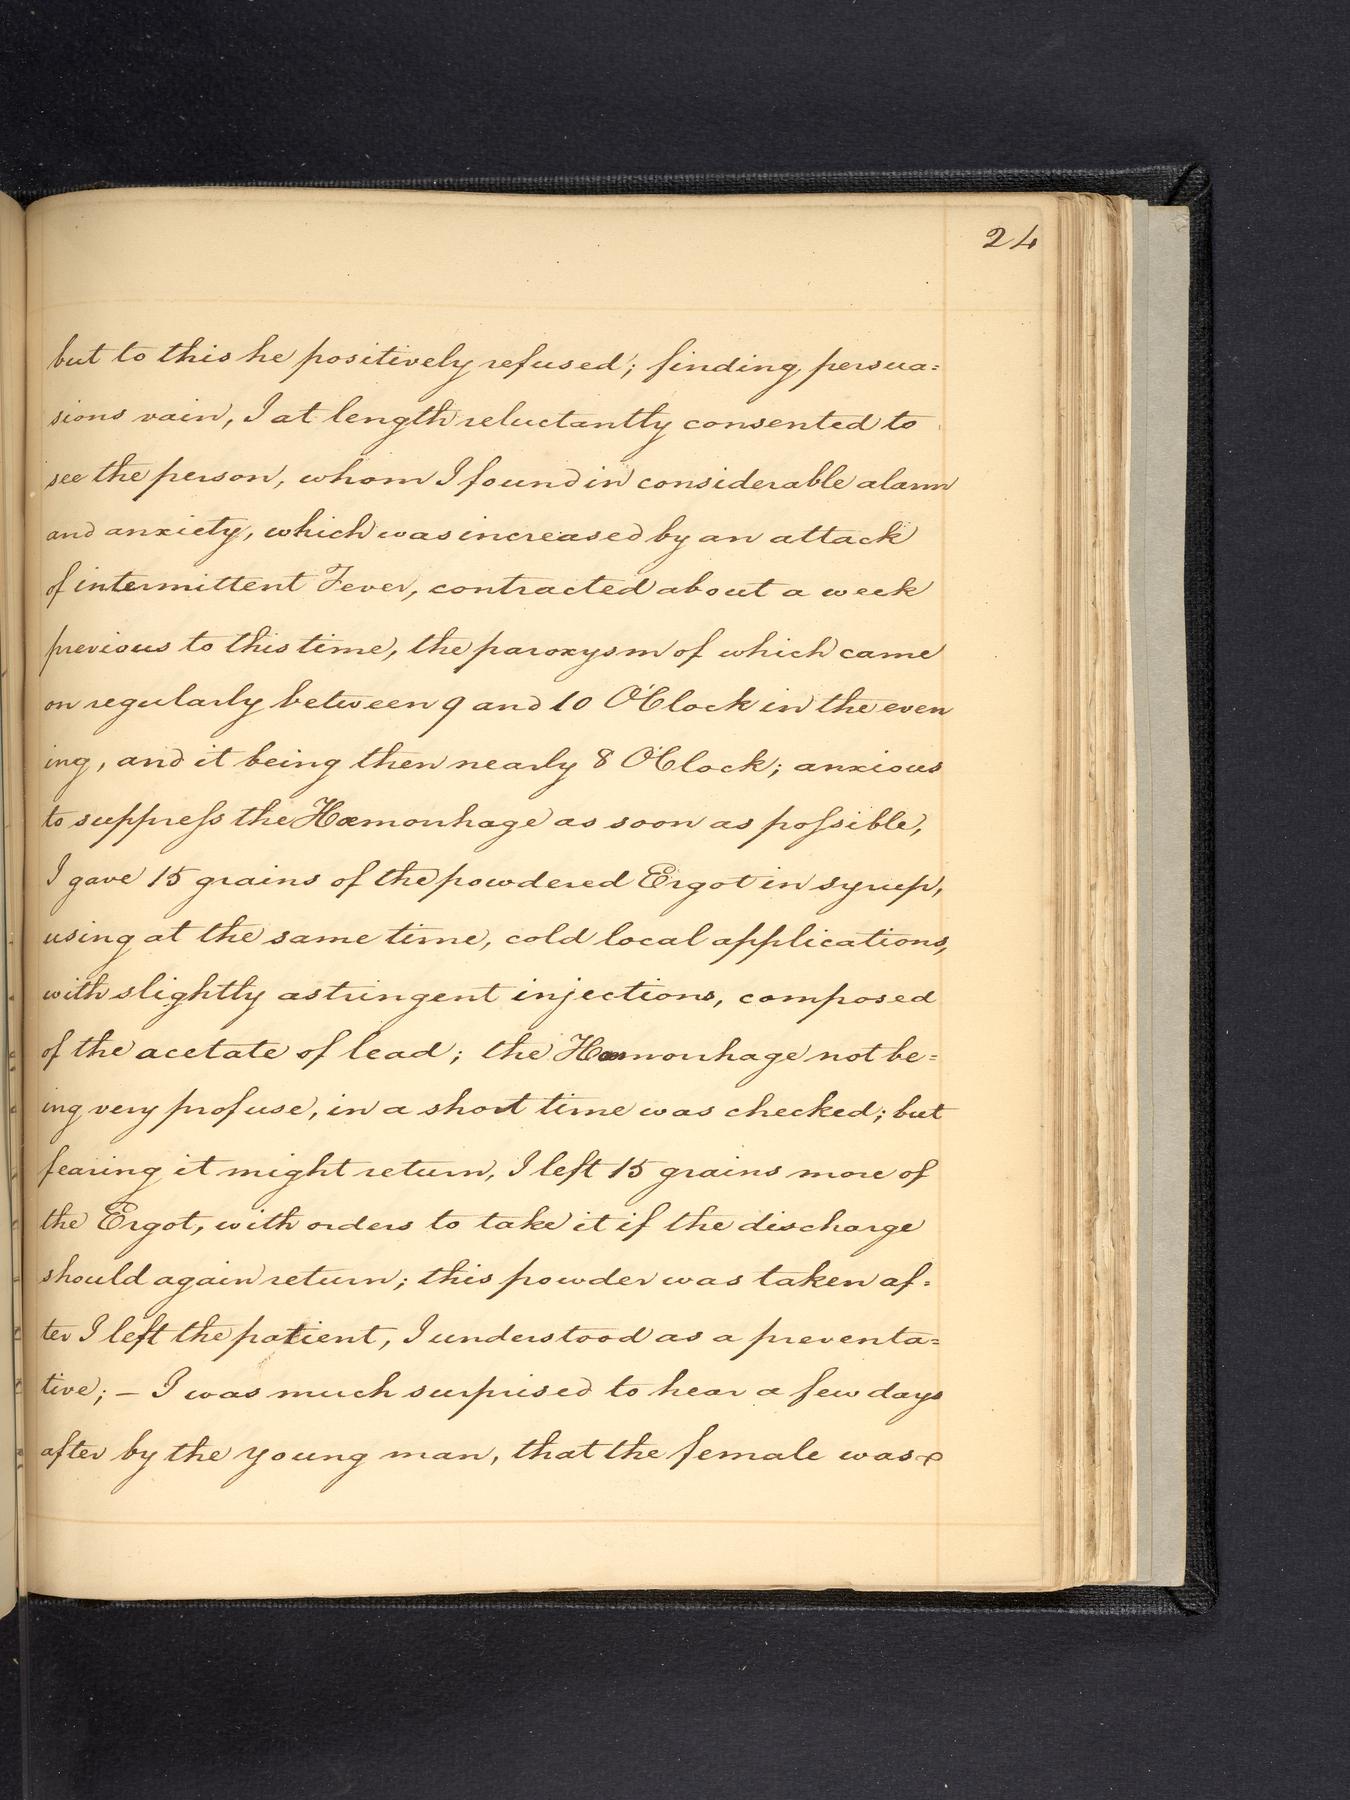 24
but to this he positively refused; finding persua=
sions vain, I at length reluctantly consented to
see the person, whom I found in considerable alarm
and anxiety, which was increased by an attack
of intermittent Fever, contracted about a week
previous to this time, the paroxysm of which came
on regularly between 9 and 10 O'Clock in the even
ing, and it being then nearly 8 O'Clock; anxious
to suppreſs the Hæmorrhage as soon as poſsible,
I gave 15 grains of the powdered Ergot in syrup,
using at the same time, cold local applications,
with slightly astringent injections, composed
of the acetate of lead; the Hæmorrhage not be=
ing very profuse, in a short time was checked; but
fearing it might return, I left 15 grains more of
the Ergot, with orders to take it if the discharge
should again return; this powder was taken af=
ter I left the patient, I understood as a preventa=
tive; – I was much surprised to hear a few days
after by the young man, that the female was